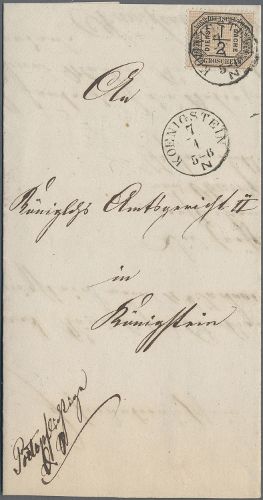 DIENST SACHE
1/2
GROSCHEN
An
KOENIGSTEIN
7
1
5-6
N
Königlches Amtsgericht II
in
Königstein
Portopflichtige